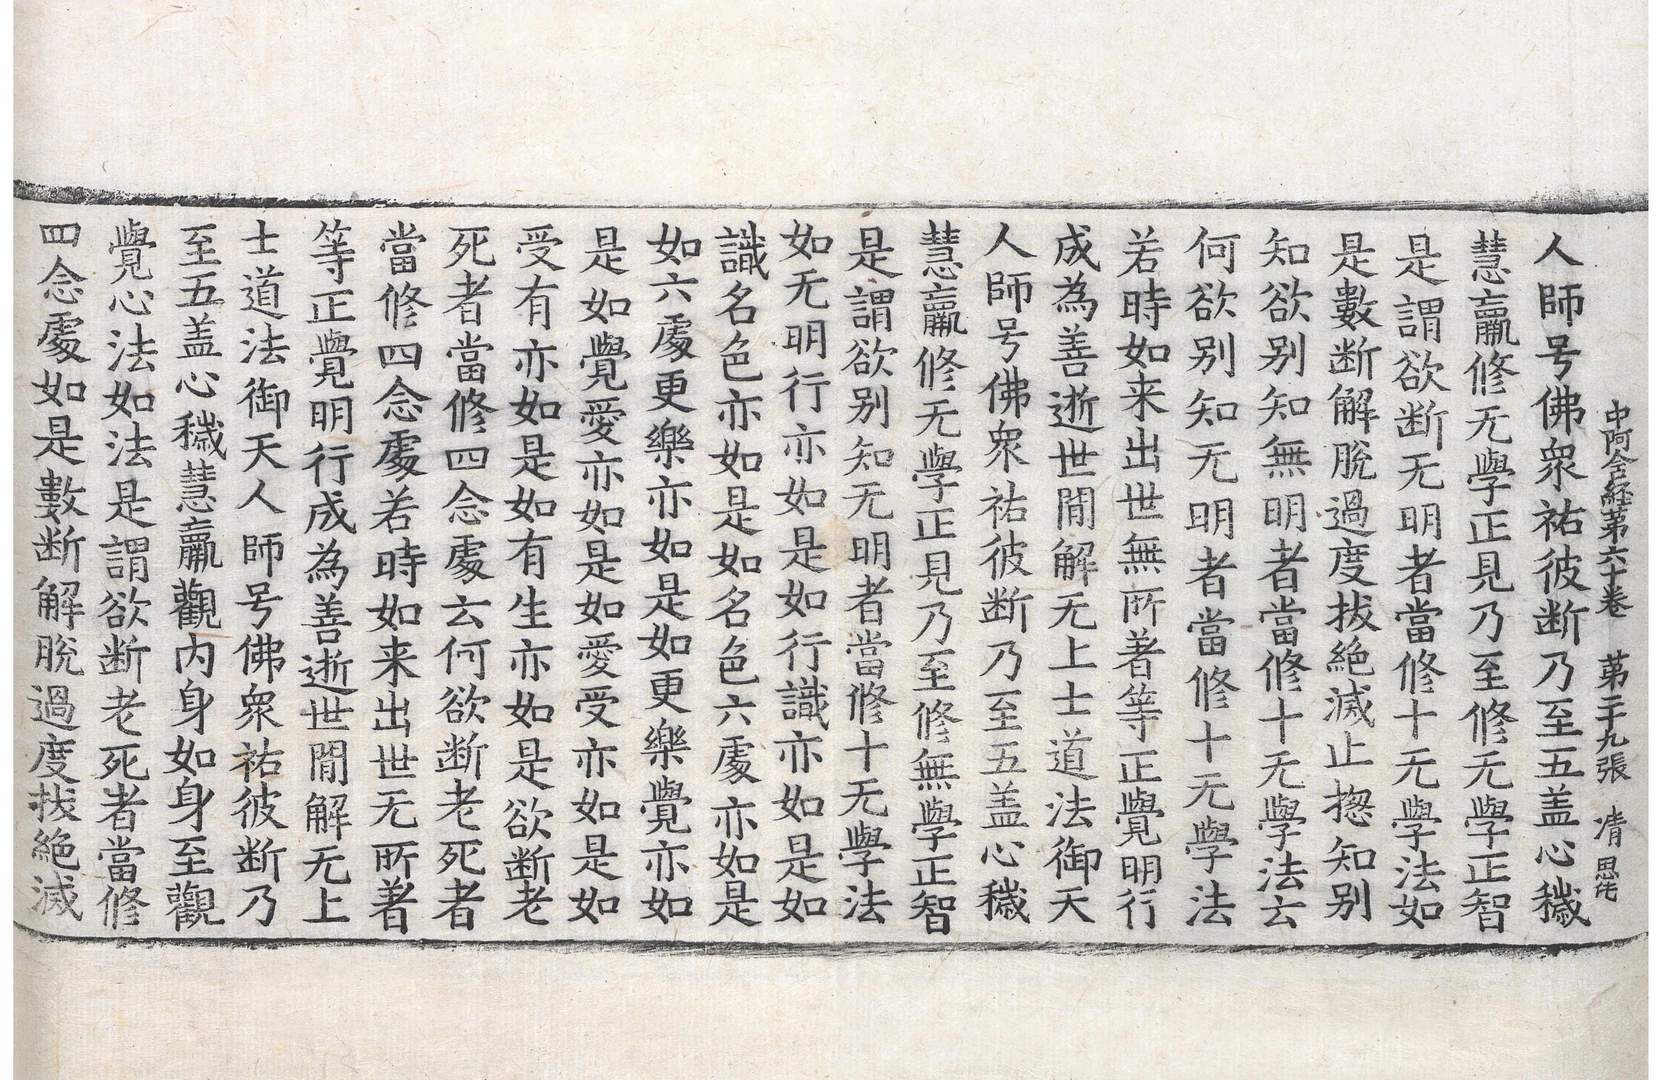 中阿含経苐六十卷　苐二十九張　清　思仛
人師号佛衆祐彼断乃至五盖心穢
慧羸修无學正見乃至修无學正智
是謂欲断无明者當修十无學法如
是數断解脫過度拔絶滅止揔知别
知欲别知無明者當修十无學法云
何欲别知无明者當修十无學法
若時如来出世無所著等正覺明行
成為善逝世間解无上士道法御天
人師号佛衆祐彼断乃至五盖心穢
慧羸修无學正見乃至修無學正智
是謂欲别知无明者當修十无學法
如无明行亦如是如行識亦如是如
識名色亦如是如名色六處亦如是
如六處更樂亦如是如更樂覺亦如
是如覺愛亦如是如愛受亦如是如
受有亦如是如有生亦如是欲断老
死者當修四念處云何欲断老死者
當修四念處若時如来出世无所著
等正覺明行成為善逝世間解无上
士道法御天人師号佛衆祐彼断乃
至五盖心穢慧羸觀内身如身至觀
覺心法如法是謂欲断老死者當修
四念處如是數断解脫過度拔絶滅